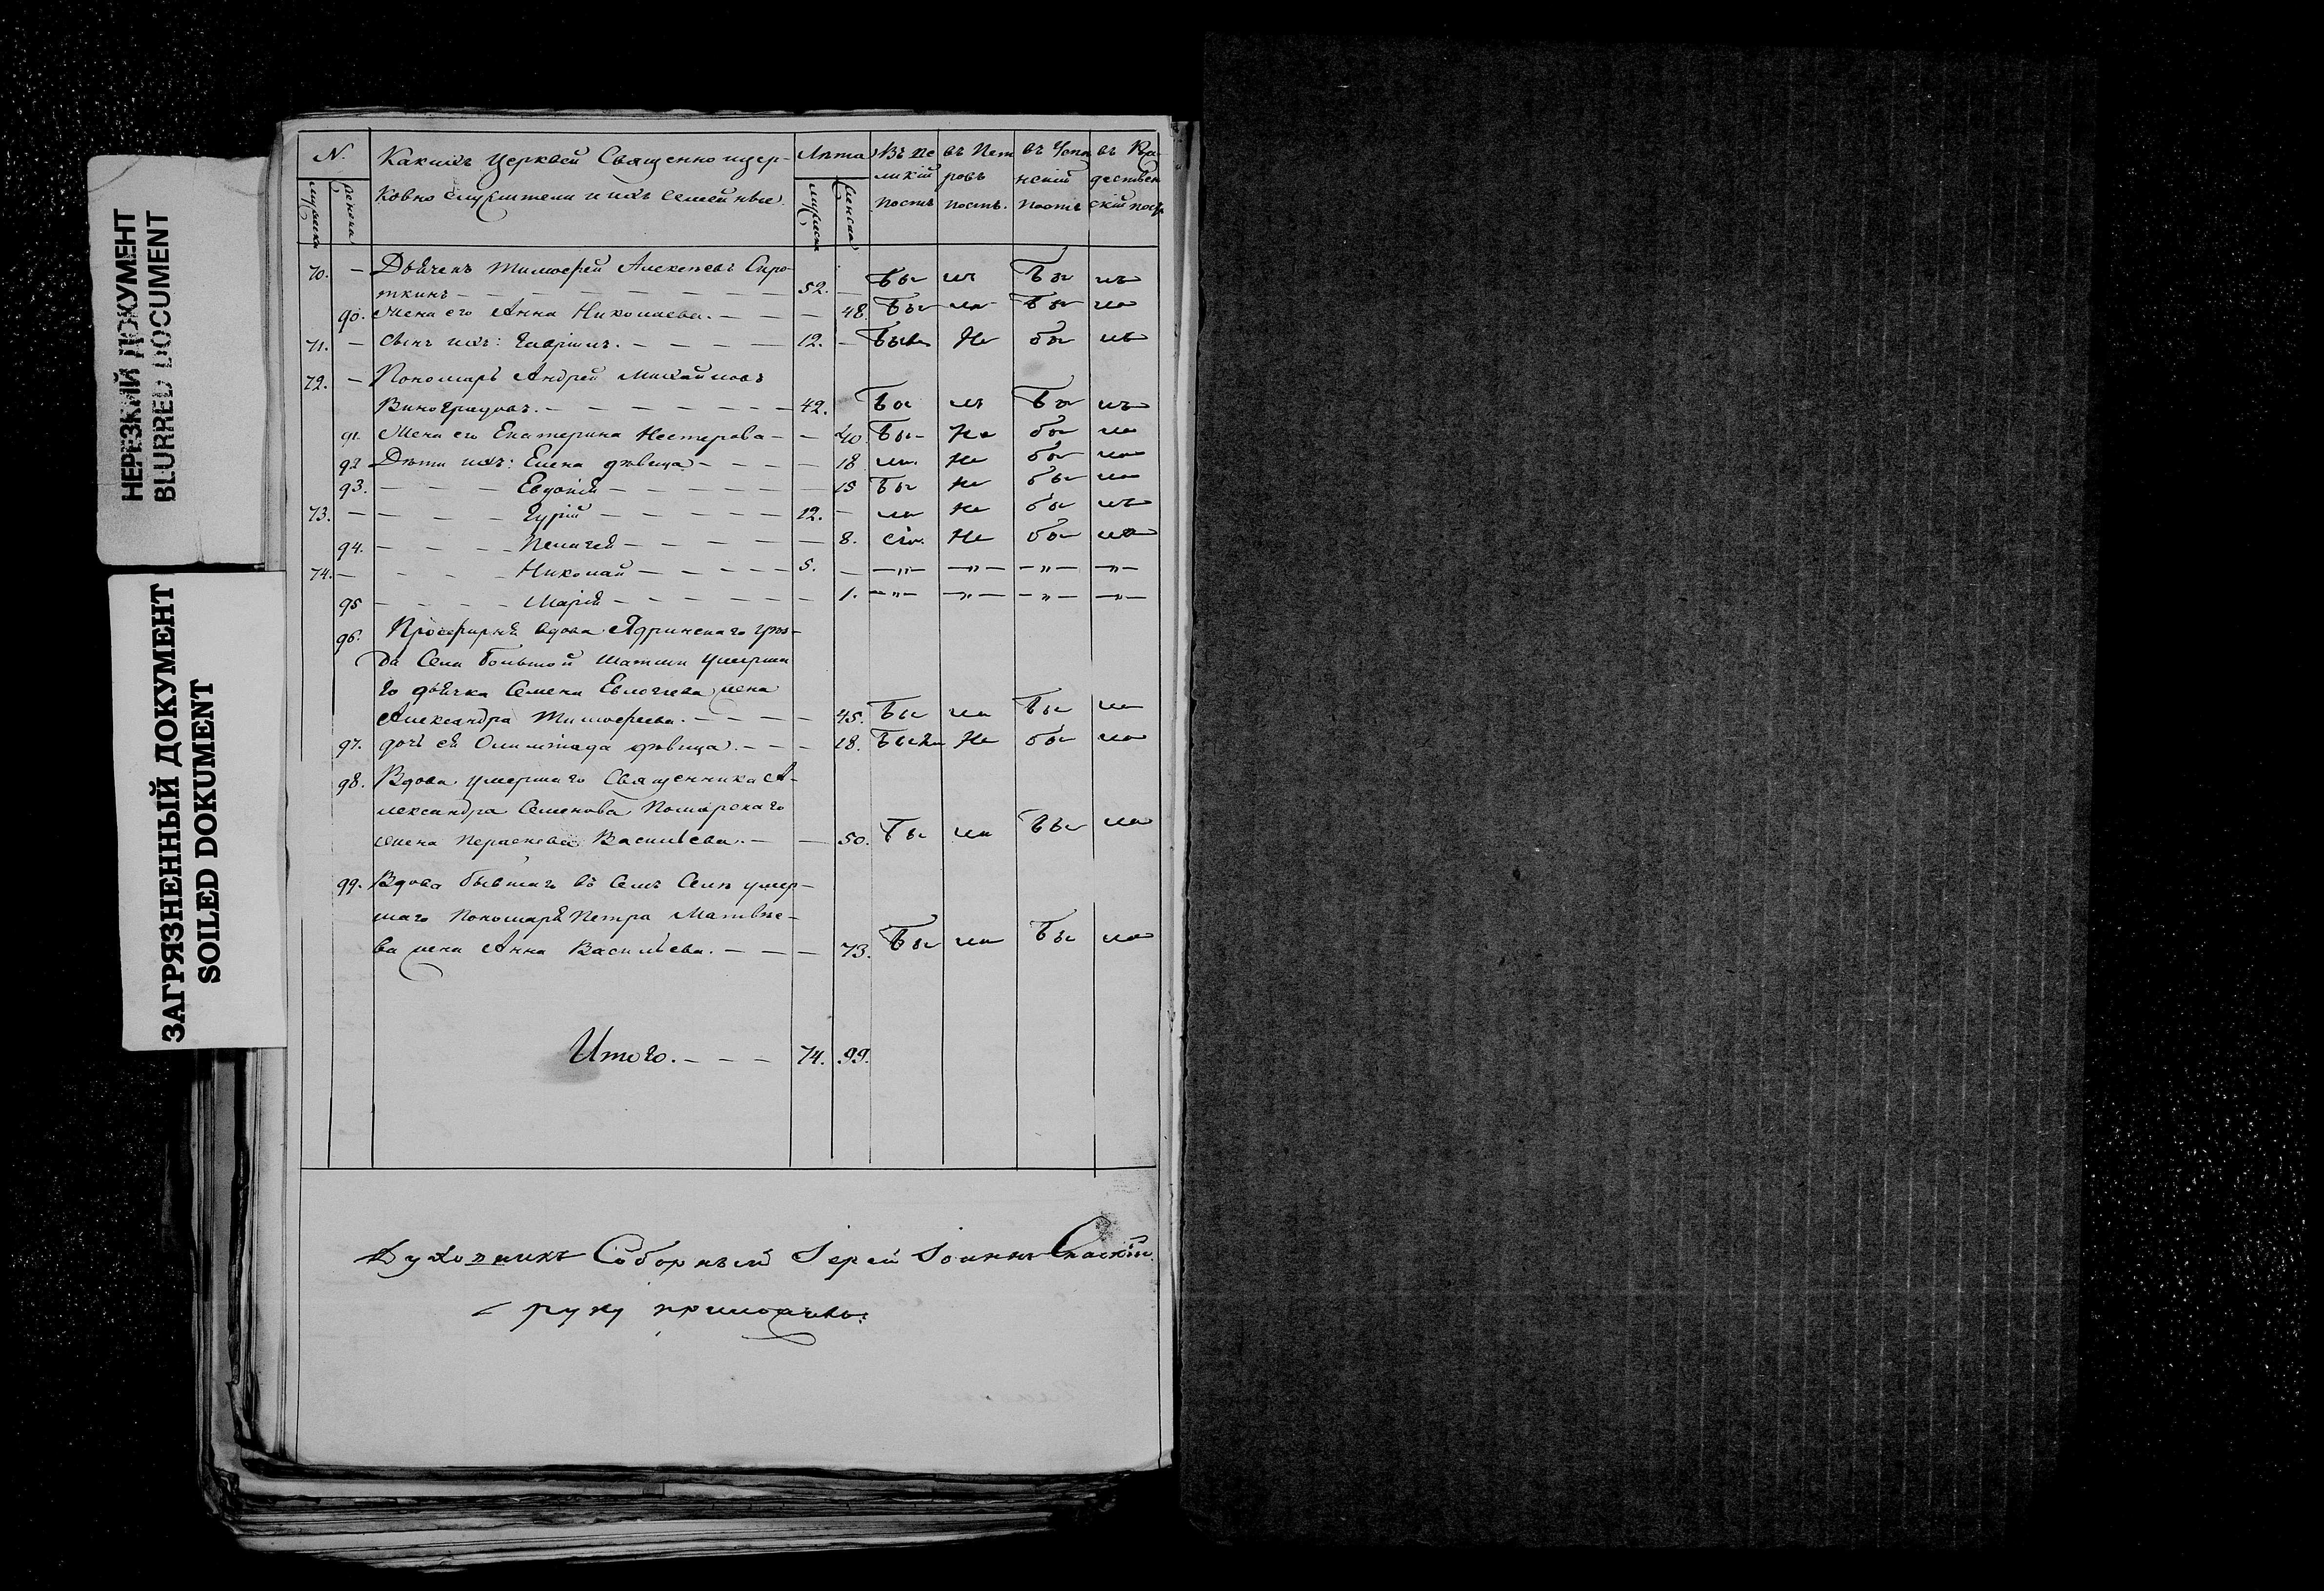 НЕРЕЗКИЙ ДОКУМЕНТ
BLURRED DOCUMENT
ЗАГРЯЗНЕННЫЙ ДОКУМЕНТ
SOILED DOKUMENT
N. Какихъ церквей Священно и цер- Лѣта Въ Ве въ Пет въ Успе въ Ро
мужеска женска ковно служители и ихъ семейные. мужеска женска ликій ровъ нскій ждествен
постъ постъ. постъ скій постъ
70. — Дьячекъ Тимофей Алексѣевъ Сиро-
ткинъ — 52. — Бы лъ Бы лъ
90. Жена его Анна Николаева. — 48. Бы ла Бы ла
71. — Сынъ ихъ: Гавріилъ. — 12. — Былъ Не бы лъ
72. — Пономарь Андрей Михайловъ
Виноградовъ. — 42. Бы лъ Бы лъ
91. Жена его Екатерина Нестерова — 40. Бы Не бы ла
92 Дѣти ихъ: Елена дѣвица — 18 ли Не бы ла
93. — Евдокія — 15 Бы Не бы ла
73. — Гурій — 12. — ли Не бы лъ
94. — Пелагея — 8. сіи. Не бы ла
74. — Николай — 5. — „ — „ — „ — „ —
95 — Марія — 1. — „ — „ — „ — „ —
96. Просфирня вдова Ядринскаго уѣз-
да Села Большой Шатьмы умерша
го дьячка Семена Евлогіева жена
Александра Тимофеева. — 45. Бы ла Бы ла
97. дочь ея Олимпіада дѣвица. — 18. Была Не бы ла
98. Вдова умершаго Священника А-
лександра Семенова Помарскаго
жена Параскева Васильева. — 50. Бы ла Бы ла
99. Вдова бывшаго въ семъ Селѣ умер-
шаго пономаря Петра Матвѣе-
ва жена Анна Васильева. — 73. Бы ла Бы ла
Итого. — 74. 99.
Духовникъ Соборный Іерей Іоаннъ Спаскій
руку приложилъ.